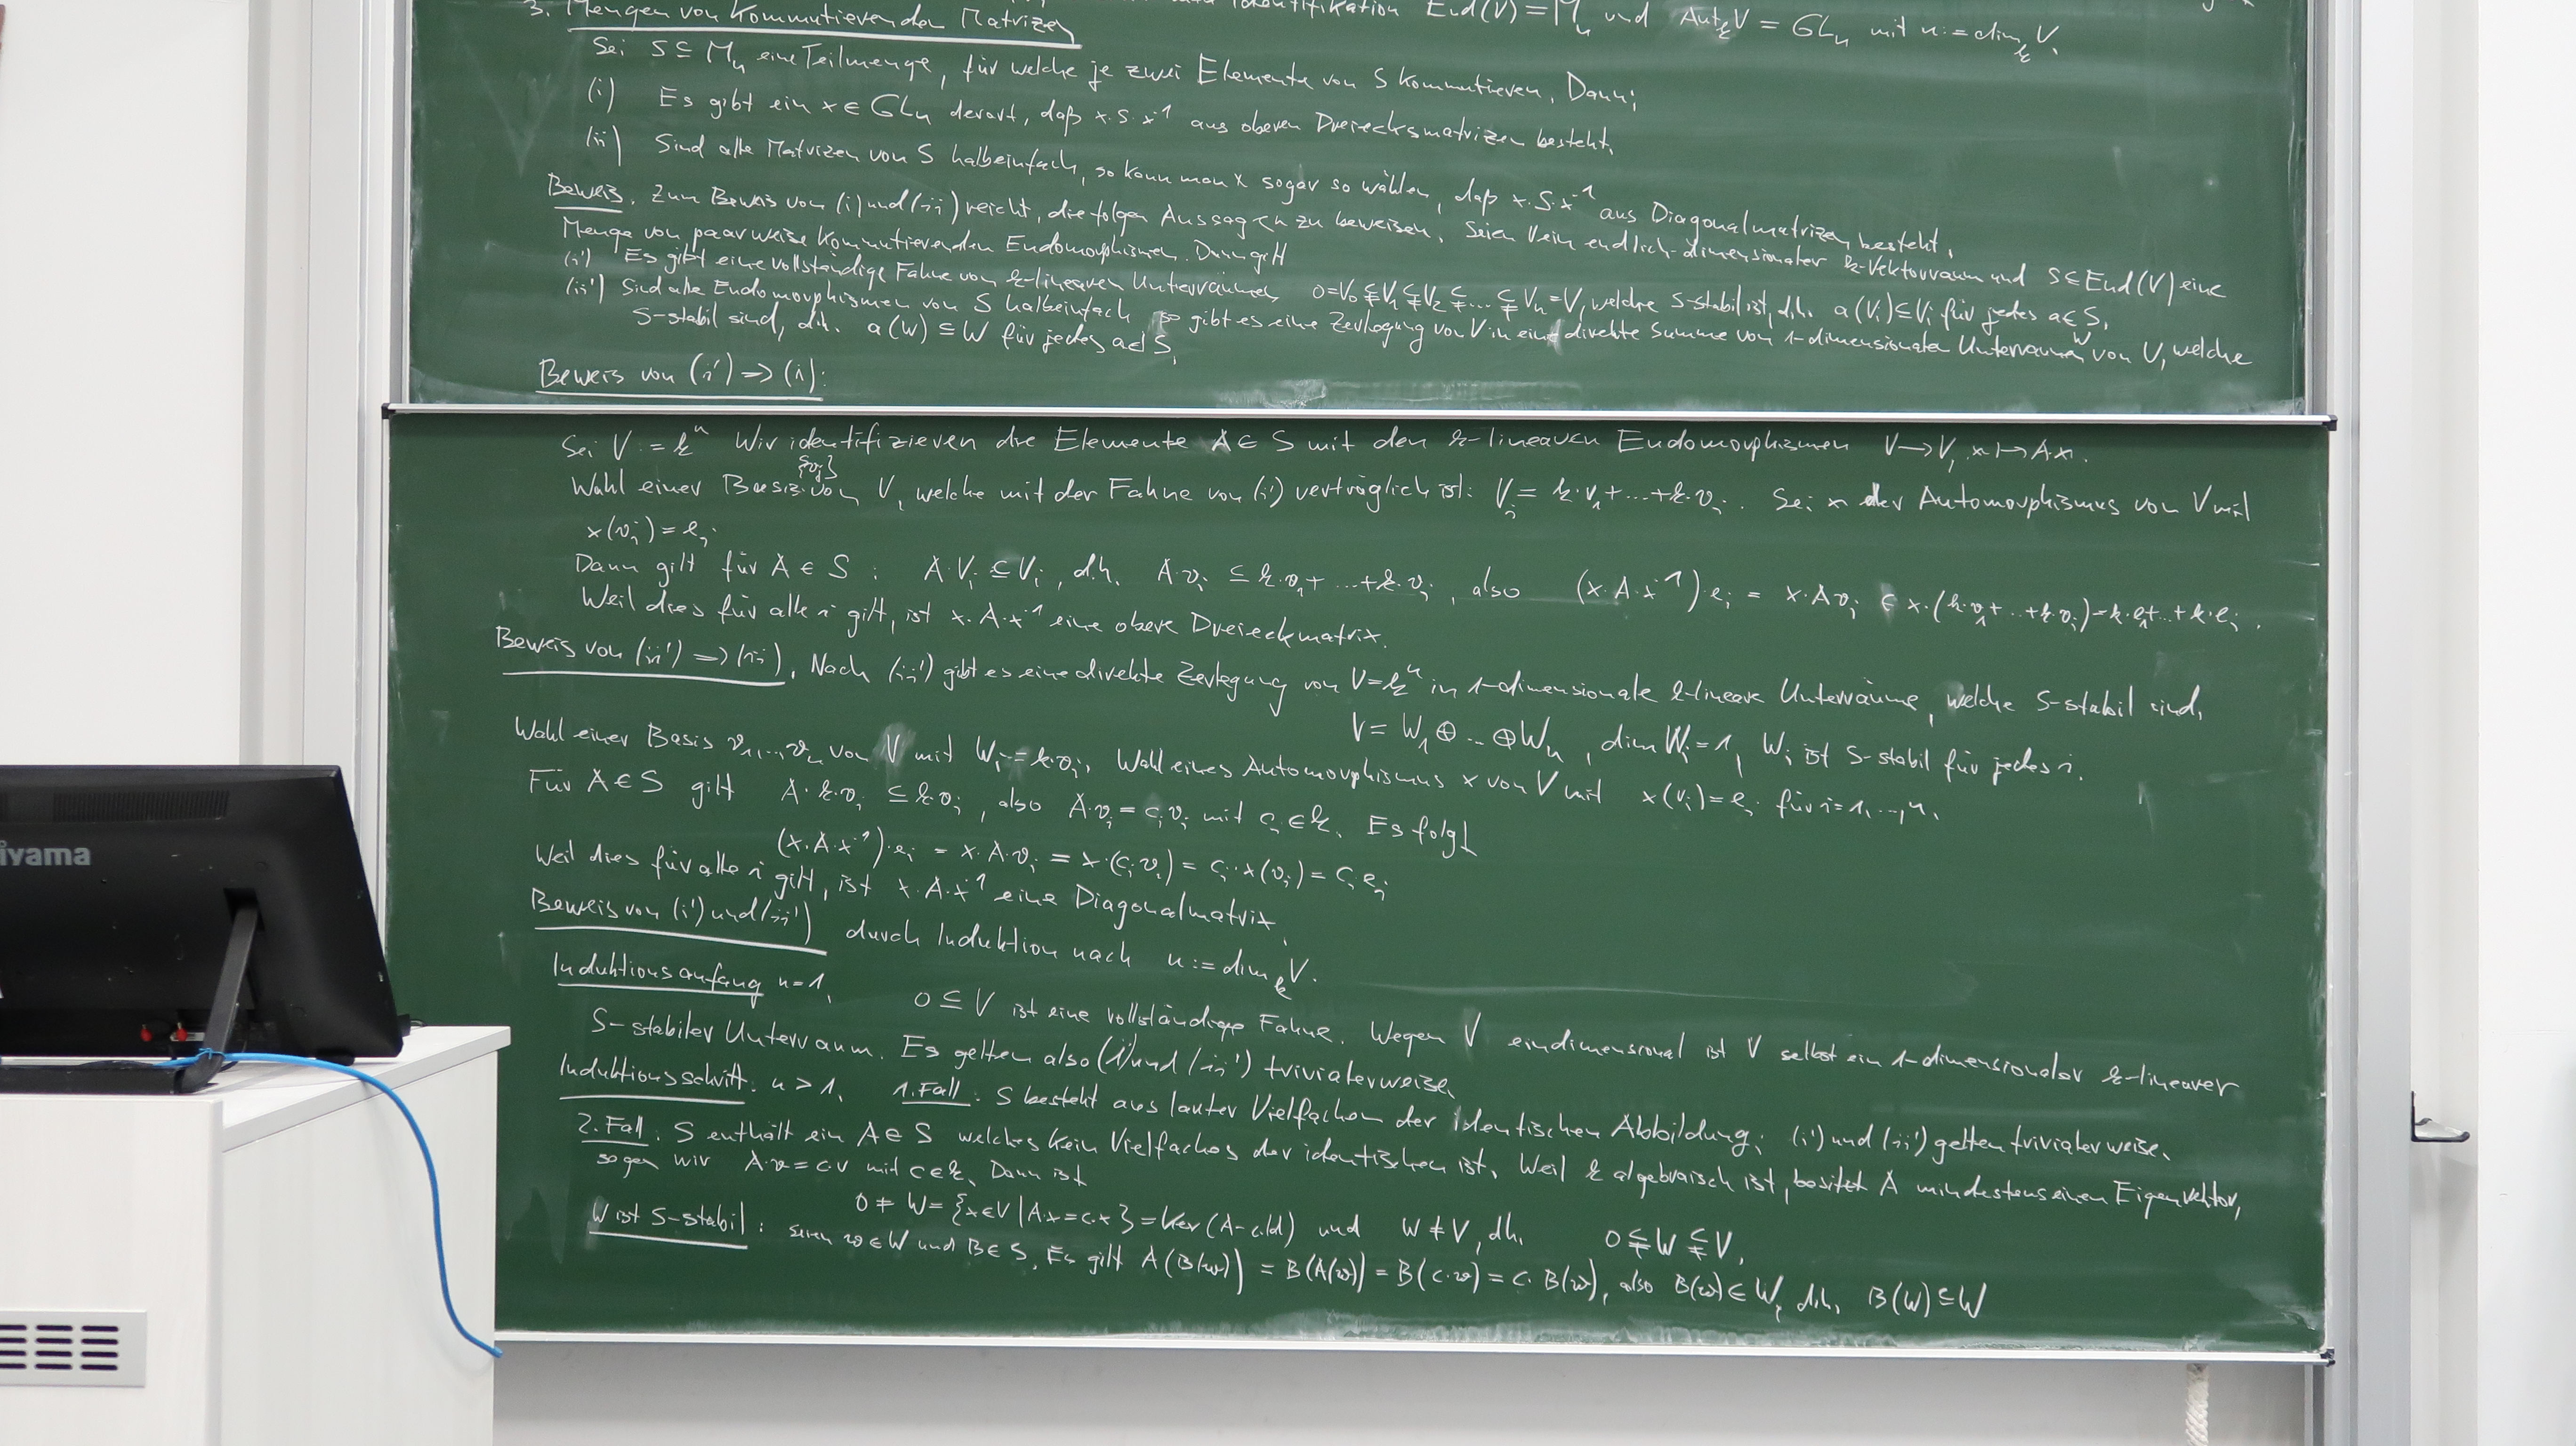 3. Mengen von kommutierenden Matrizen
Identifikation End(V) = M_n und Aut_k V = GL_n mit n := dim_k V.
Sei S ⊆ M_n eine Teilmenge, für welche je zwei Elemente von S kommutieren. Dann:
(i) Es gibt ein x ∈ GL_n derart, daß x·S·x⁻¹ aus oberen Dreiecksmatrizen besteht.
(ii) Sind alle Matrizen von S halbeinfach, so kann man x sogar so wählen, daß x·S·x⁻¹ aus Diagonalmatrizen besteht.
Beweis. Zum Beweis von (i) und (ii) reicht, die folgen Aussagen zu beweisen. Seien V ein endlich-dimensionaler k-Vektorraum und S ⊆ End(V) eine
Menge von paarweise kommutierenden Endomorphismen. Dann gilt
(i') Es gibt eine vollständige Fahne von k-linearen Unterräumen 0 = V₀ ⊊ V₁ ⊊ V₂ ⊊ ... ⊊ V_n = V, welche S-stabil ist, d.h. a(V_i) ⊆ V_i für jedes a ∈ S.
(ii') Sind alle Endomorphismen von S halbeinfach so gibt es eine Zerlegung von V in eine direkte Summe von 1-dimensionalen Unterräumen W von V, welche
S-stabil sind, d.h. a(W) ⊆ W für jedes a ∈ S.
Beweis von (i') ⇒ (i):
Sei V := kⁿ Wir identifizieren die Elemente A ∈ S mit den k-linearen Endomorphismen V → V, x ↦ Ax.
Wahl einer Basis {v_i} von V, welche mit der Fahne von (i') verträglich ist: V_i = k·v₁+...+k·v_i. Sei x der Automorphismus von V mit
x(v_i) = e_i
Dann gilt für A ∈ S : A·V_i ⊆ V_i, d.h. A·v_i ⊆ k·v₁+...+k·v_i, also (x·A·x⁻¹)·e_i = x·A v_i ∈ x·(k·v₁+...+k·v_i) = k·e₁+...+k·e_i.
Weil dies für alle i gilt, ist x·A·x⁻¹ eine obere Dreieckmatrix.
Beweis von (ii') ⇒ (ii). Nach (ii') gibt es eine direkte Zerlegung von V = kⁿ in 1-dimensionale k-lineare Unterräume, welche S-stabil sind,
V = W₁ ⊕ ... ⊕ W_n, dim W_i = 1, W_i ist S-stabil für jedes i.
Wahl einer Basis v₁,...,v_n von V mit W_i = k·v_i. Wahl eines Automorphismus x von V mit x(v_i) = e_i für i = 1,...,n.
Für A ∈ S gilt A·k·v_i ⊆ k·v_i, also A·v_i = c_i v_i mit c_i ∈ k. Es folgt
(x·A·x⁻¹)·e_i = x·A·v_i = x·(c_i v_i) = c_i·x(v_i) = c_i e_i
Weil dies für alle i gilt, ist x·A·x⁻¹ eine Diagonalmatrix.
Beweis von (i') und (ii') durch Induktion nach n := dim_k V.
Induktionsanfang n=1. 0 ⊆ V ist eine vollständige Fahne. Wegen V eindimensional ist V selbst ein 1-dimensionaler k-linearer
S-stabiler Unterraum. Es gelten also (i') und (ii') trivialerweise.
Induktionsschritt: n > 1. 1. Fall: S besteht aus lauter Vielfachen der identischen Abbildung: (i') und (ii') gelten trivialerweise.
2. Fall: S enthält ein A ∈ S welches kein Vielfaches der identischen ist. Weil k algebraisch ist, besitzt A mindestens einen Eigenvektor,
sagen wir A·v = c·v mit c ∈ k. Dann ist
0 ≠ W = {x ∈ V | A·x = c·x} = Ker(A - c·Id) und W ≠ V, dh. 0 ⊊ W ⊊ V.
W ist S-stabil: seien w ∈ W und B ∈ S. Es gilt A(B(w)) = B(A(w)) = B(c·w) = c·B(w), also B(w) ∈ W, d.h. B(W) ⊆ W
iyama